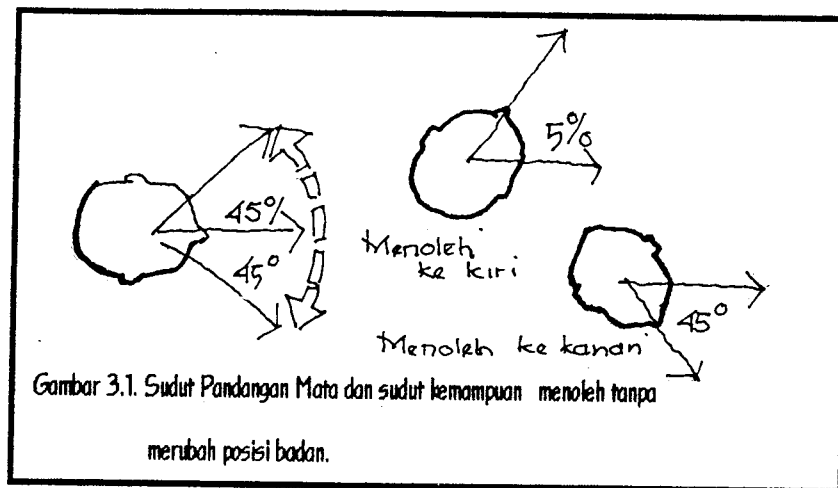 45%
45°
5%
Menoleh
ke kiri
45°
Menoleh ke kanan
Gambar 3.1. Sudut Pandangan Mata dan sudut kemampuan menoleh tanpa
merubah posisi badan.